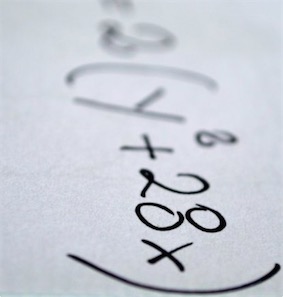 2(y² + 28x)